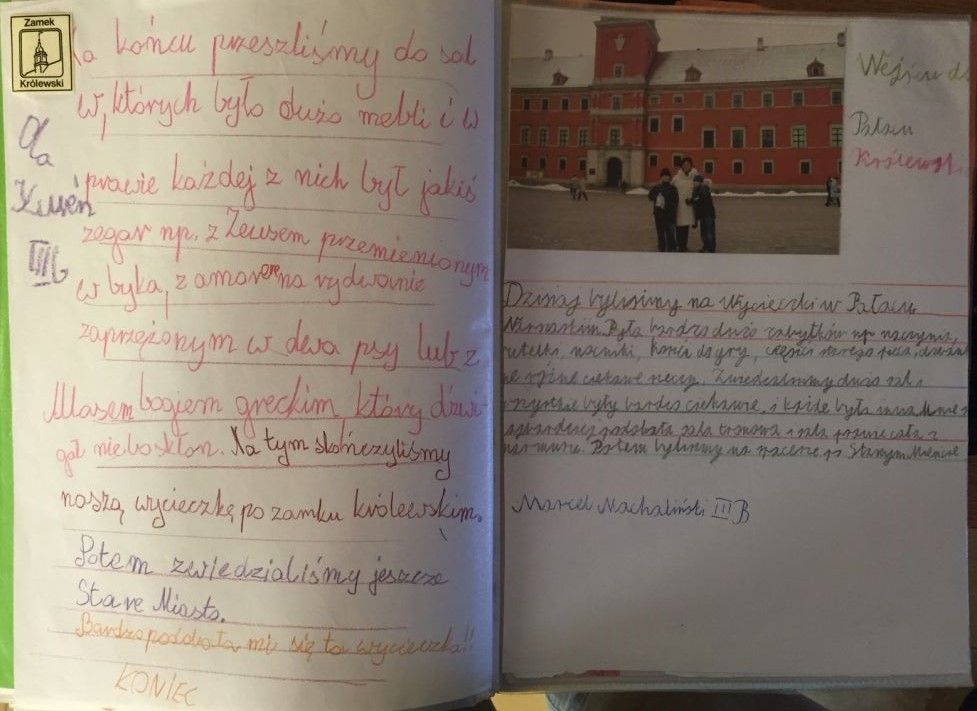 Zamek
Królewski
Na końcu przeszliśmy do sal
w, których było dużo mebli i w
prawie każdej z nich był jakiś
zegar np. z Zeusem przemienionym
w byka, z amorem na rydwanie
zaprzężonym w dwa psy lub z
Atlasem bogiem greckim, który dźwi-
gał nieboskłon. Na tym skończyliśmy
naszą wycieczkę po zamku królewskim.
Potem zwiedzialiśmy jeszcze
Stare Miasto.
Bardzo podobała mi się ta wycieczka!!
KONIEC
Ola
Kuseń
III b
Wejście do
Pałacu
Królewski
Dzisiaj byliśmy na Wycieczki w Pałacu
Była bardzo dużo zabytków np naczynia,
butelki, nocniki, kości do gry, części starego pieca,
różne ciekawe rzeczy. Zwiedzalismy dużo sal i
wszystkie były bardzo ciekawe, i każda była inna Mnie
najbardziej podobała sala tronowa i sala prawie cała z
marmuru. Potem bylismy na spacerze po Starym Mieście
Marcel Machaliński III B